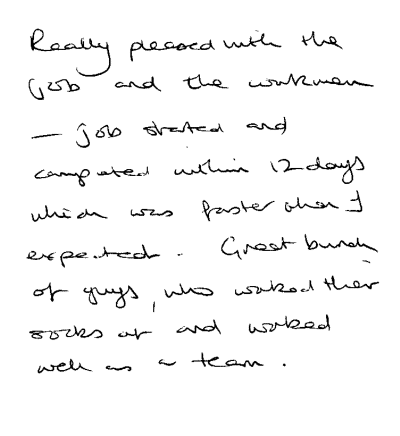 Really pleased with the
job and the workmen
— job started and
completed within 12 days
which was faster than I
expected. Great bunch
of guys, who worked their
socks off and worked
well as a team.